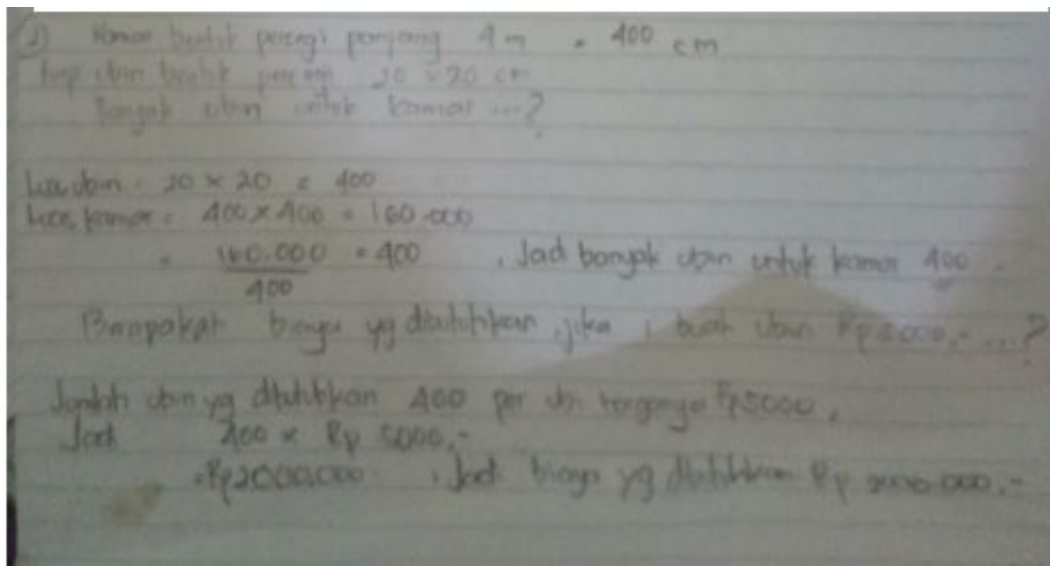 2) Kamar bentuk persegi panjang 4 m = 400 cm
tiap ubin bentuk persegi 20 x 20 cm
Banyak ubin untuk kamar ...?
Luas ubin = 20 x 20 = 400
Luas kamar = 400 x 400 = 160.000
= 160.000 = 400 , Jadi banyak ubin untuk kamar 400 .
400
Berapakah biaya yg dibutuhkan, jika 1 buah ubin Rp 5000,- ...?
Jumlah ubin yg dibutuhkan 400 per ubi harganya Rp5000,
Jadi 400 x Rp 5000,-
= Rp2000.000 , Jadi biaya yg dibutuhkan Rp 2000.000,-